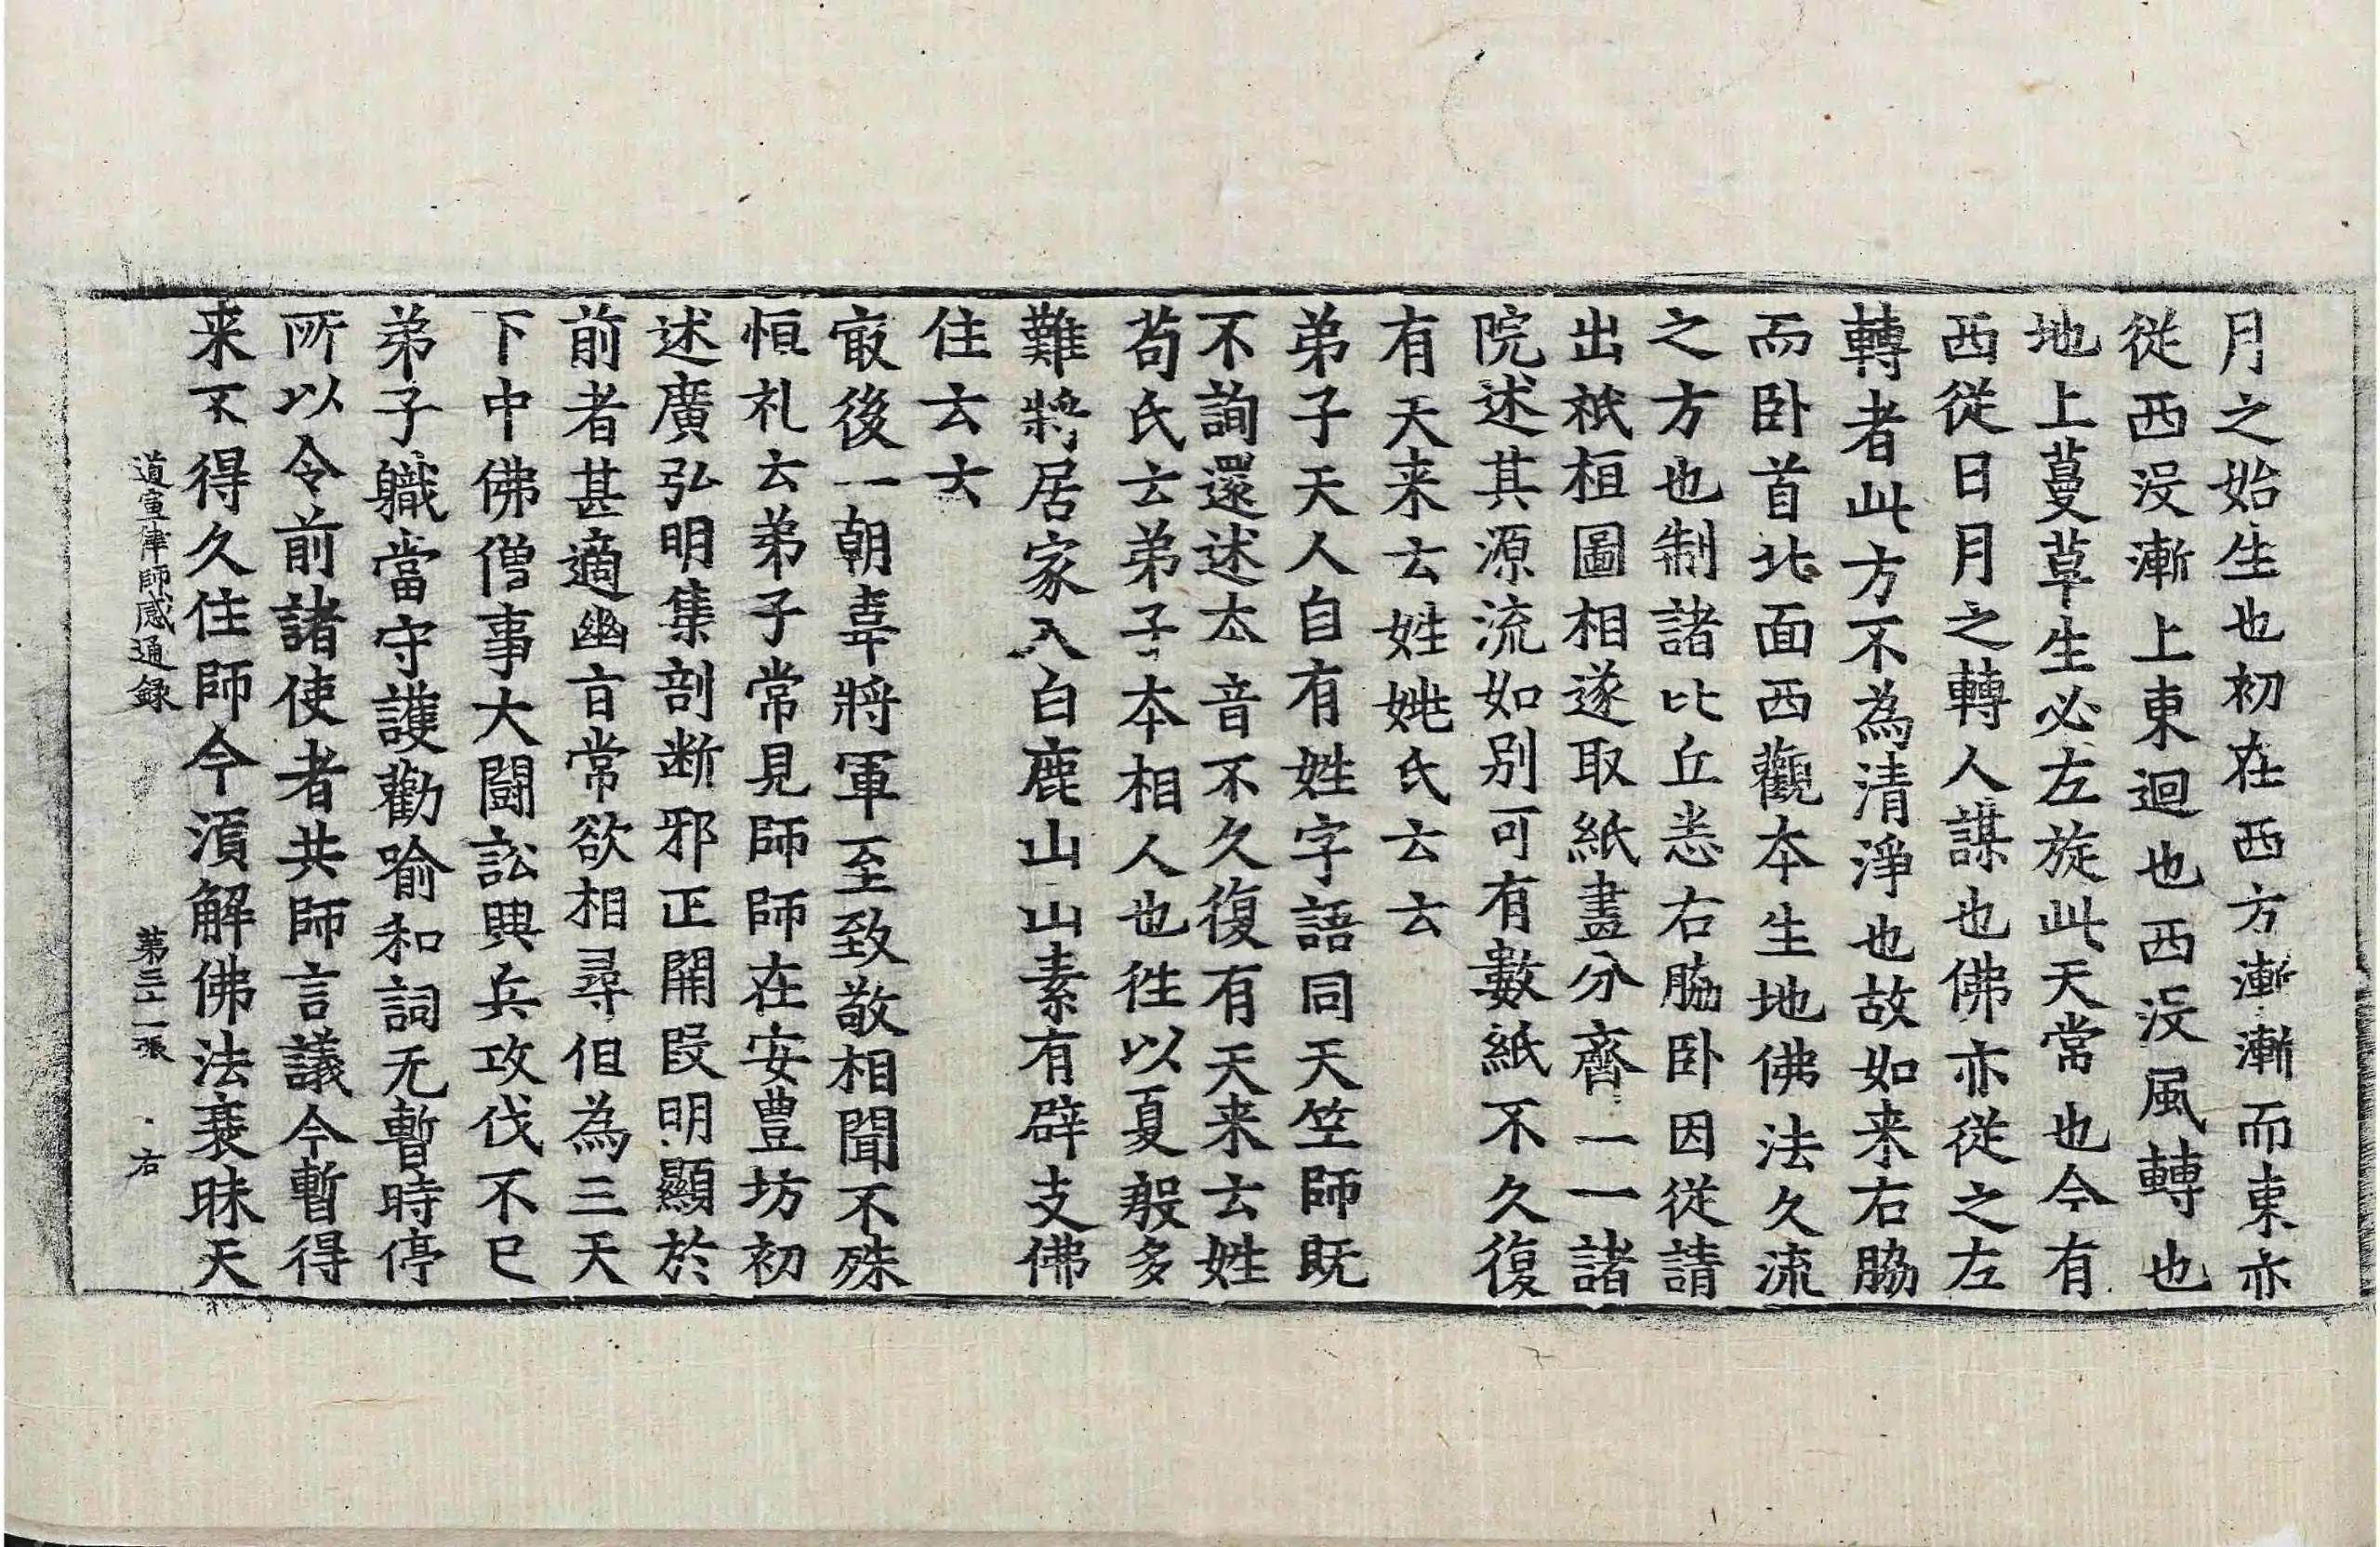 月之始生也初在西方漸漸而東亦
從西没漸上東迴也西没風轉也
地上蔓草生必左旋此天常也今有
西從日月之轉人謀也佛亦從之左
轉者此方不為清淨也故如来右脇
而卧首北面西觀本生地佛法久流
之方也制諸比丘悉右脇卧因從請
出祇桓圖相遂取紙畫分齊一一諸
院述其源流如别可有數紙不久復
有天来云姓姚氏云云
弟子天人自有姓字語同天竺師既
不詢還述太音不久復有天来云姓
苟氏云弟子本相人也徃以夏殷多
難將居家入白鹿山山素有辟支佛
住云云
㝡後一朝韋將軍至致敬相聞不殊
恒礼云弟子常見師師在安豊坊初
述廣弘明集剖断邪正開段明顯於
前者甚適幽旨常欲相尋但為三天
下中佛僧事大鬪訟興兵攻伐不已
弟子職當守護勸喻和詞无暫時停
所以令前諸使者共師言議今暫得
来不得久住師今湏解佛法衰昧天
道宣律師感通録 第三十二張 右